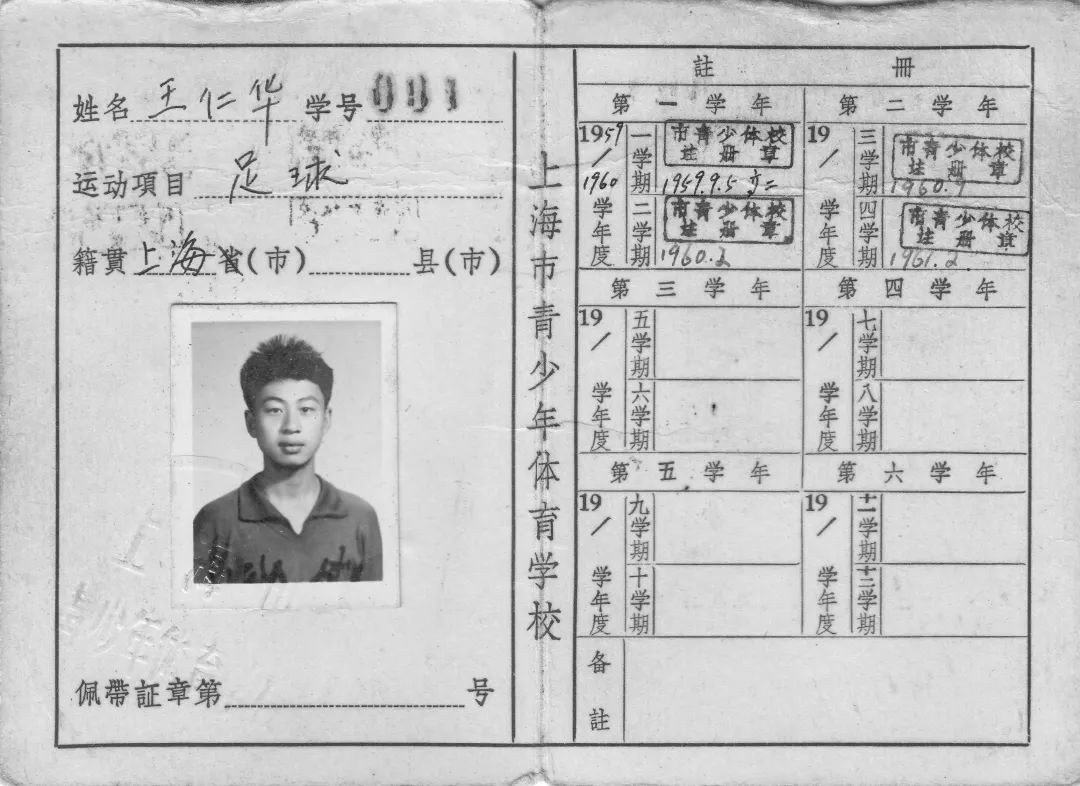 姓名 王仁华 学号 091
运动項目 足球
籍貫 上海 省(市) 县(市)
佩帶証章第 号
上海市青少年体育学校
註 冊
第一学年
1959/1960学年度
一学期
市青少体校
註册章
1959.9.5
二学期
市青少体校
註册章
1960.2
第二学年
19 / 学年度
三学期
市青少体校
註册章
1960.9
四学期
市青少体校
註册章
1961.2
第三学年
19 / 学年度
五学期
六学期
第四学年
19 / 学年度
七学期
八学期
第五学年
19 / 学年度
九学期
十学期
第六学年
19 / 学年度
十一学期
十二学期
备註